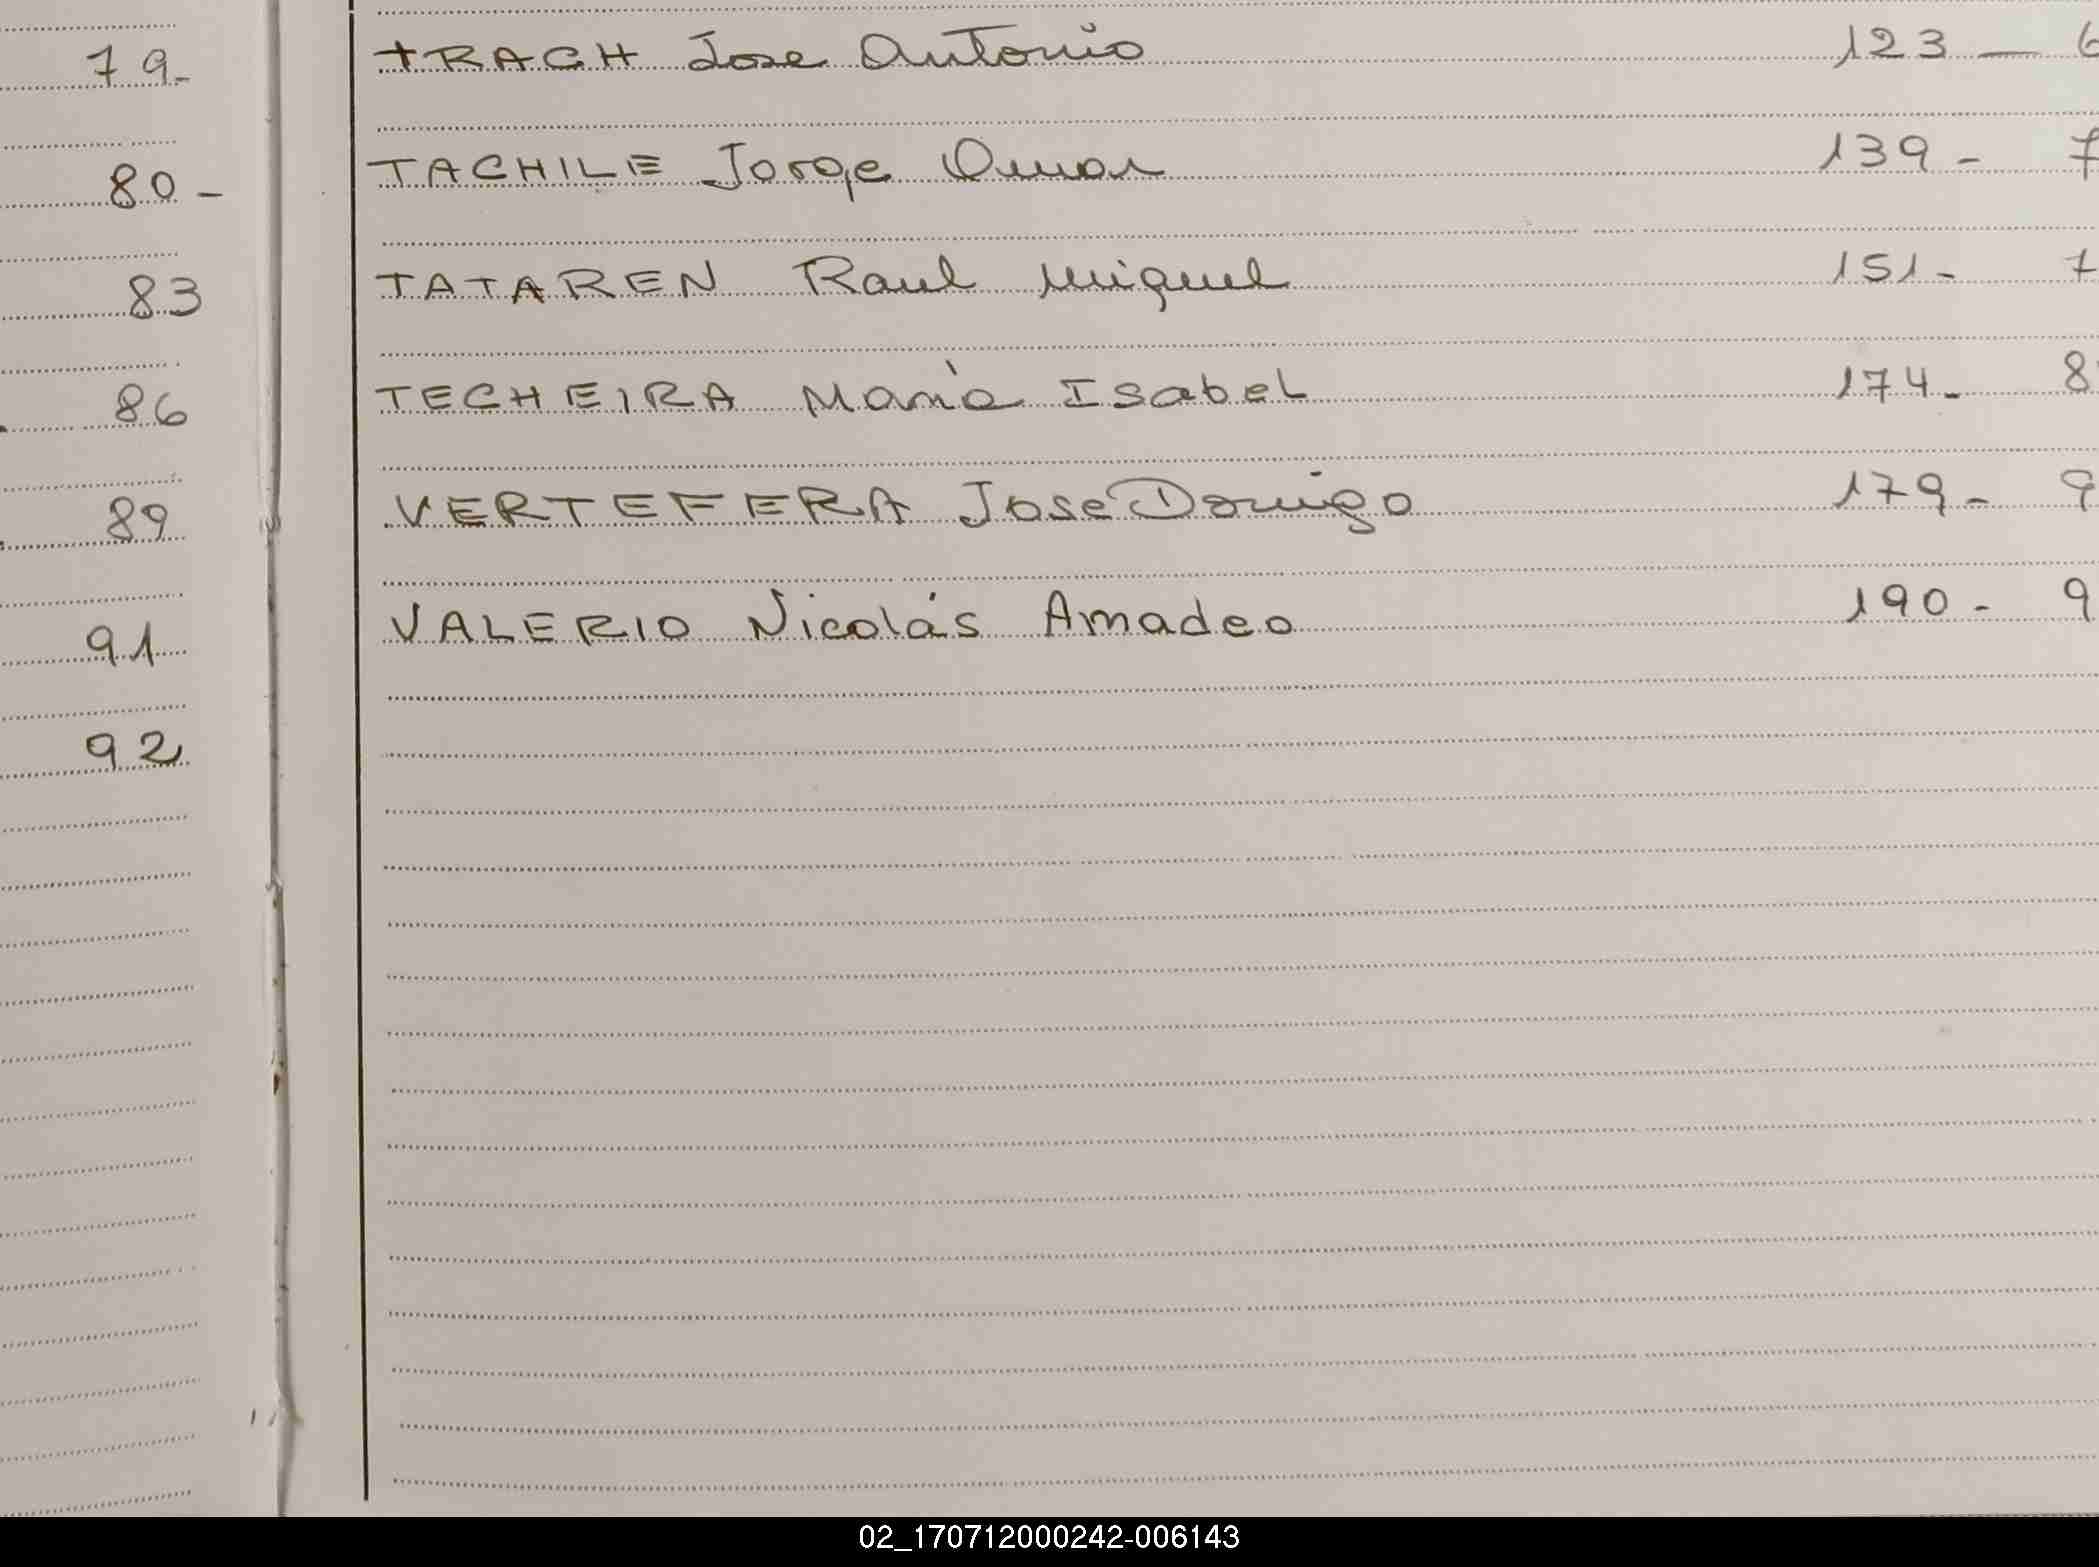 79-
80-
83
86
89
91
92
TRACH Jose Antonio 123 — 6
TACHILE Jorge Omar 139 - 7
TATAREN Raul Miguel 151 - 7
TECHEIRA María Isabel 174 - 8
VERTEFERA Jose Domigo 179 - 9
VALERIO Nicolás Amadeo 190 - 9
02_170712000242-006143